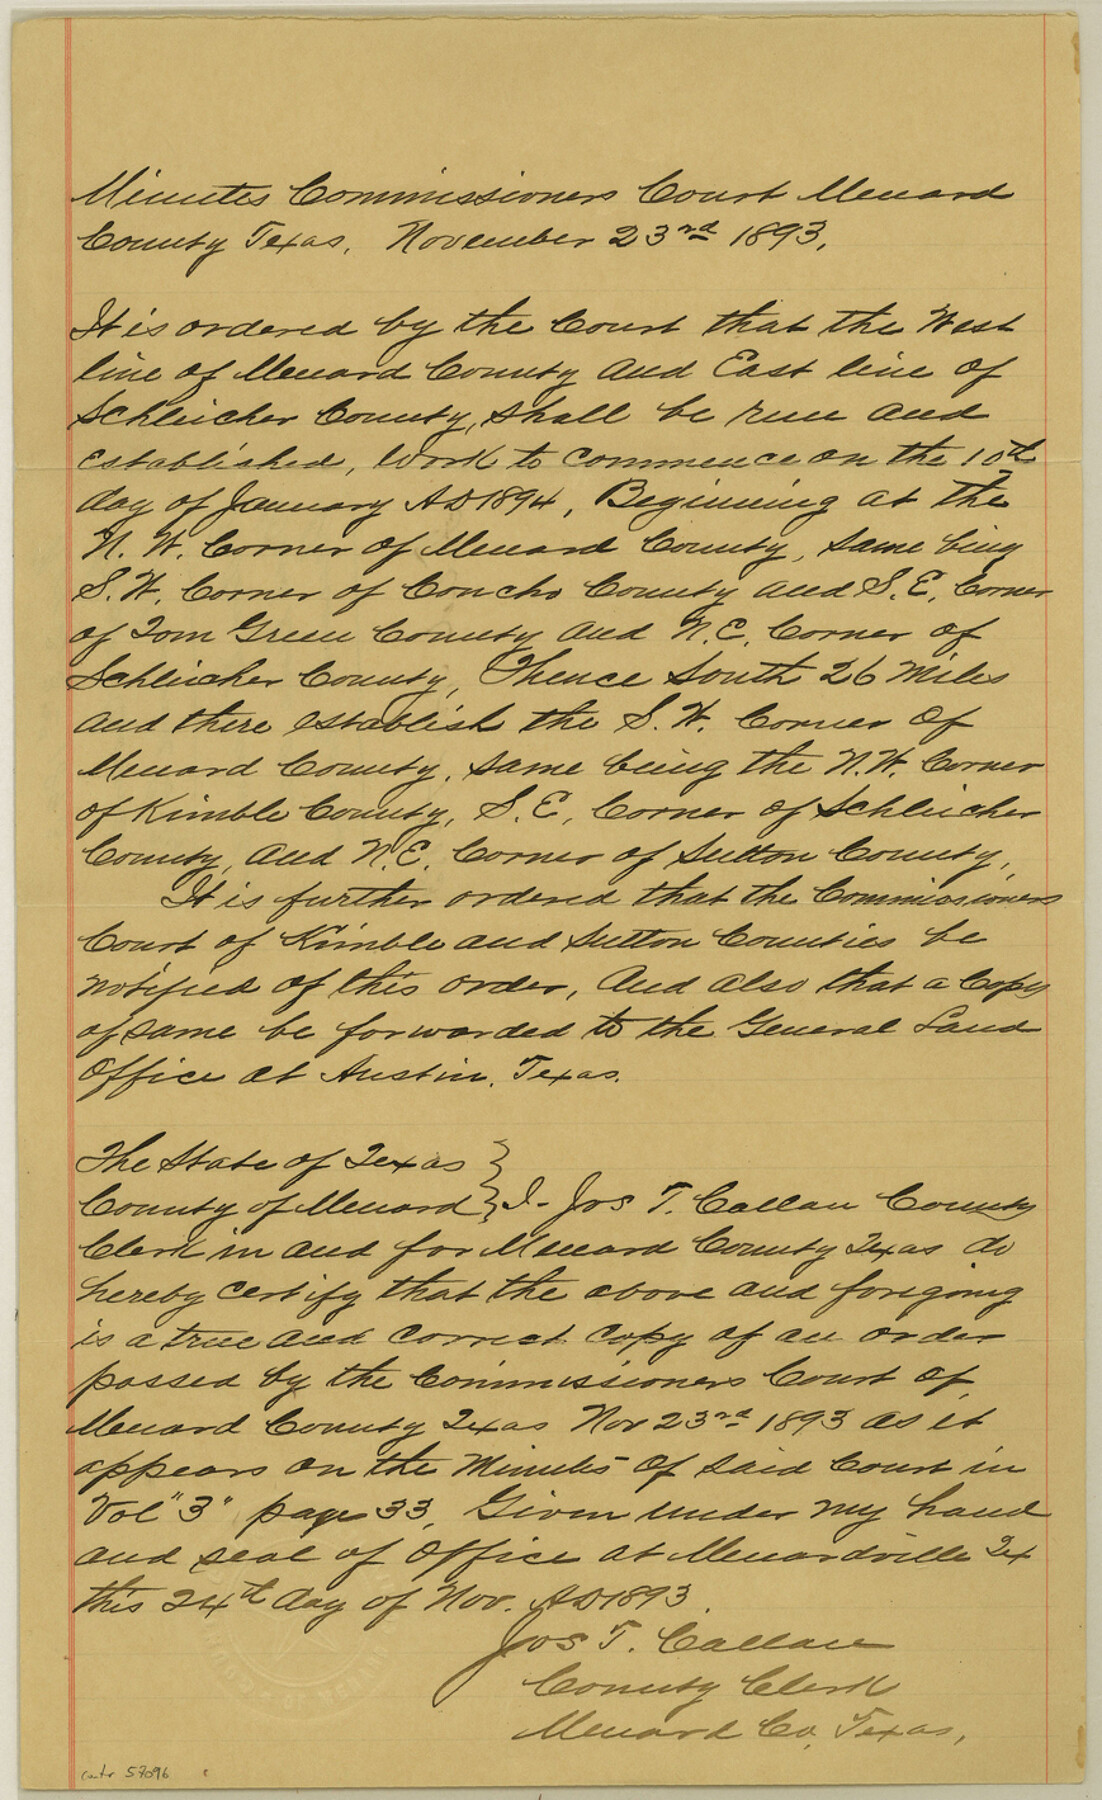 Minutes Commissioners Court Menard
County Texas, November 23rd 1893,
It is ordered by the Court that the West
line of Menard County and East line of
Schleicher County, shall be run and
established, work to commence on the 10th
day of January AD 1894, Beginning at the
N. W. Corner of Menard County, same being
S. W. Corner of Concho County and S. E. Corner
of Tom Green County and N. E. Corner of
Schleicher County, Thence South 26 miles
and there establish the S. W. Corner of
Menard County, same being the N. W. Corner
of Kimble County, S. E. Corner of Schleicher
County, and N. E. Corner of Sutton County,
It is further ordered that the Commissioners
Court of Kimble and Sutton Counties be
notified of this order, and also that a Copy
of same be forwarded to the General Land
Office at Austin, Texas.
The State of Texas }
County of Menard } I- Jos T. Callan County
Clerk in and for Menard County Texas do
hereby certify that the above and foregoing
is a true and correct copy of an order
passed by the Commissioners Court of
Menard County Texas Nov 23rd 1893 as it
appears on the Minutes of said Court in
Vol "3" page 33, Given under my hand
and seal of office at Menardville Tex
this 24th day of Nov. AD 1893.
Jos T. Callan
County Clerk
Menard Co, Texas,
57096